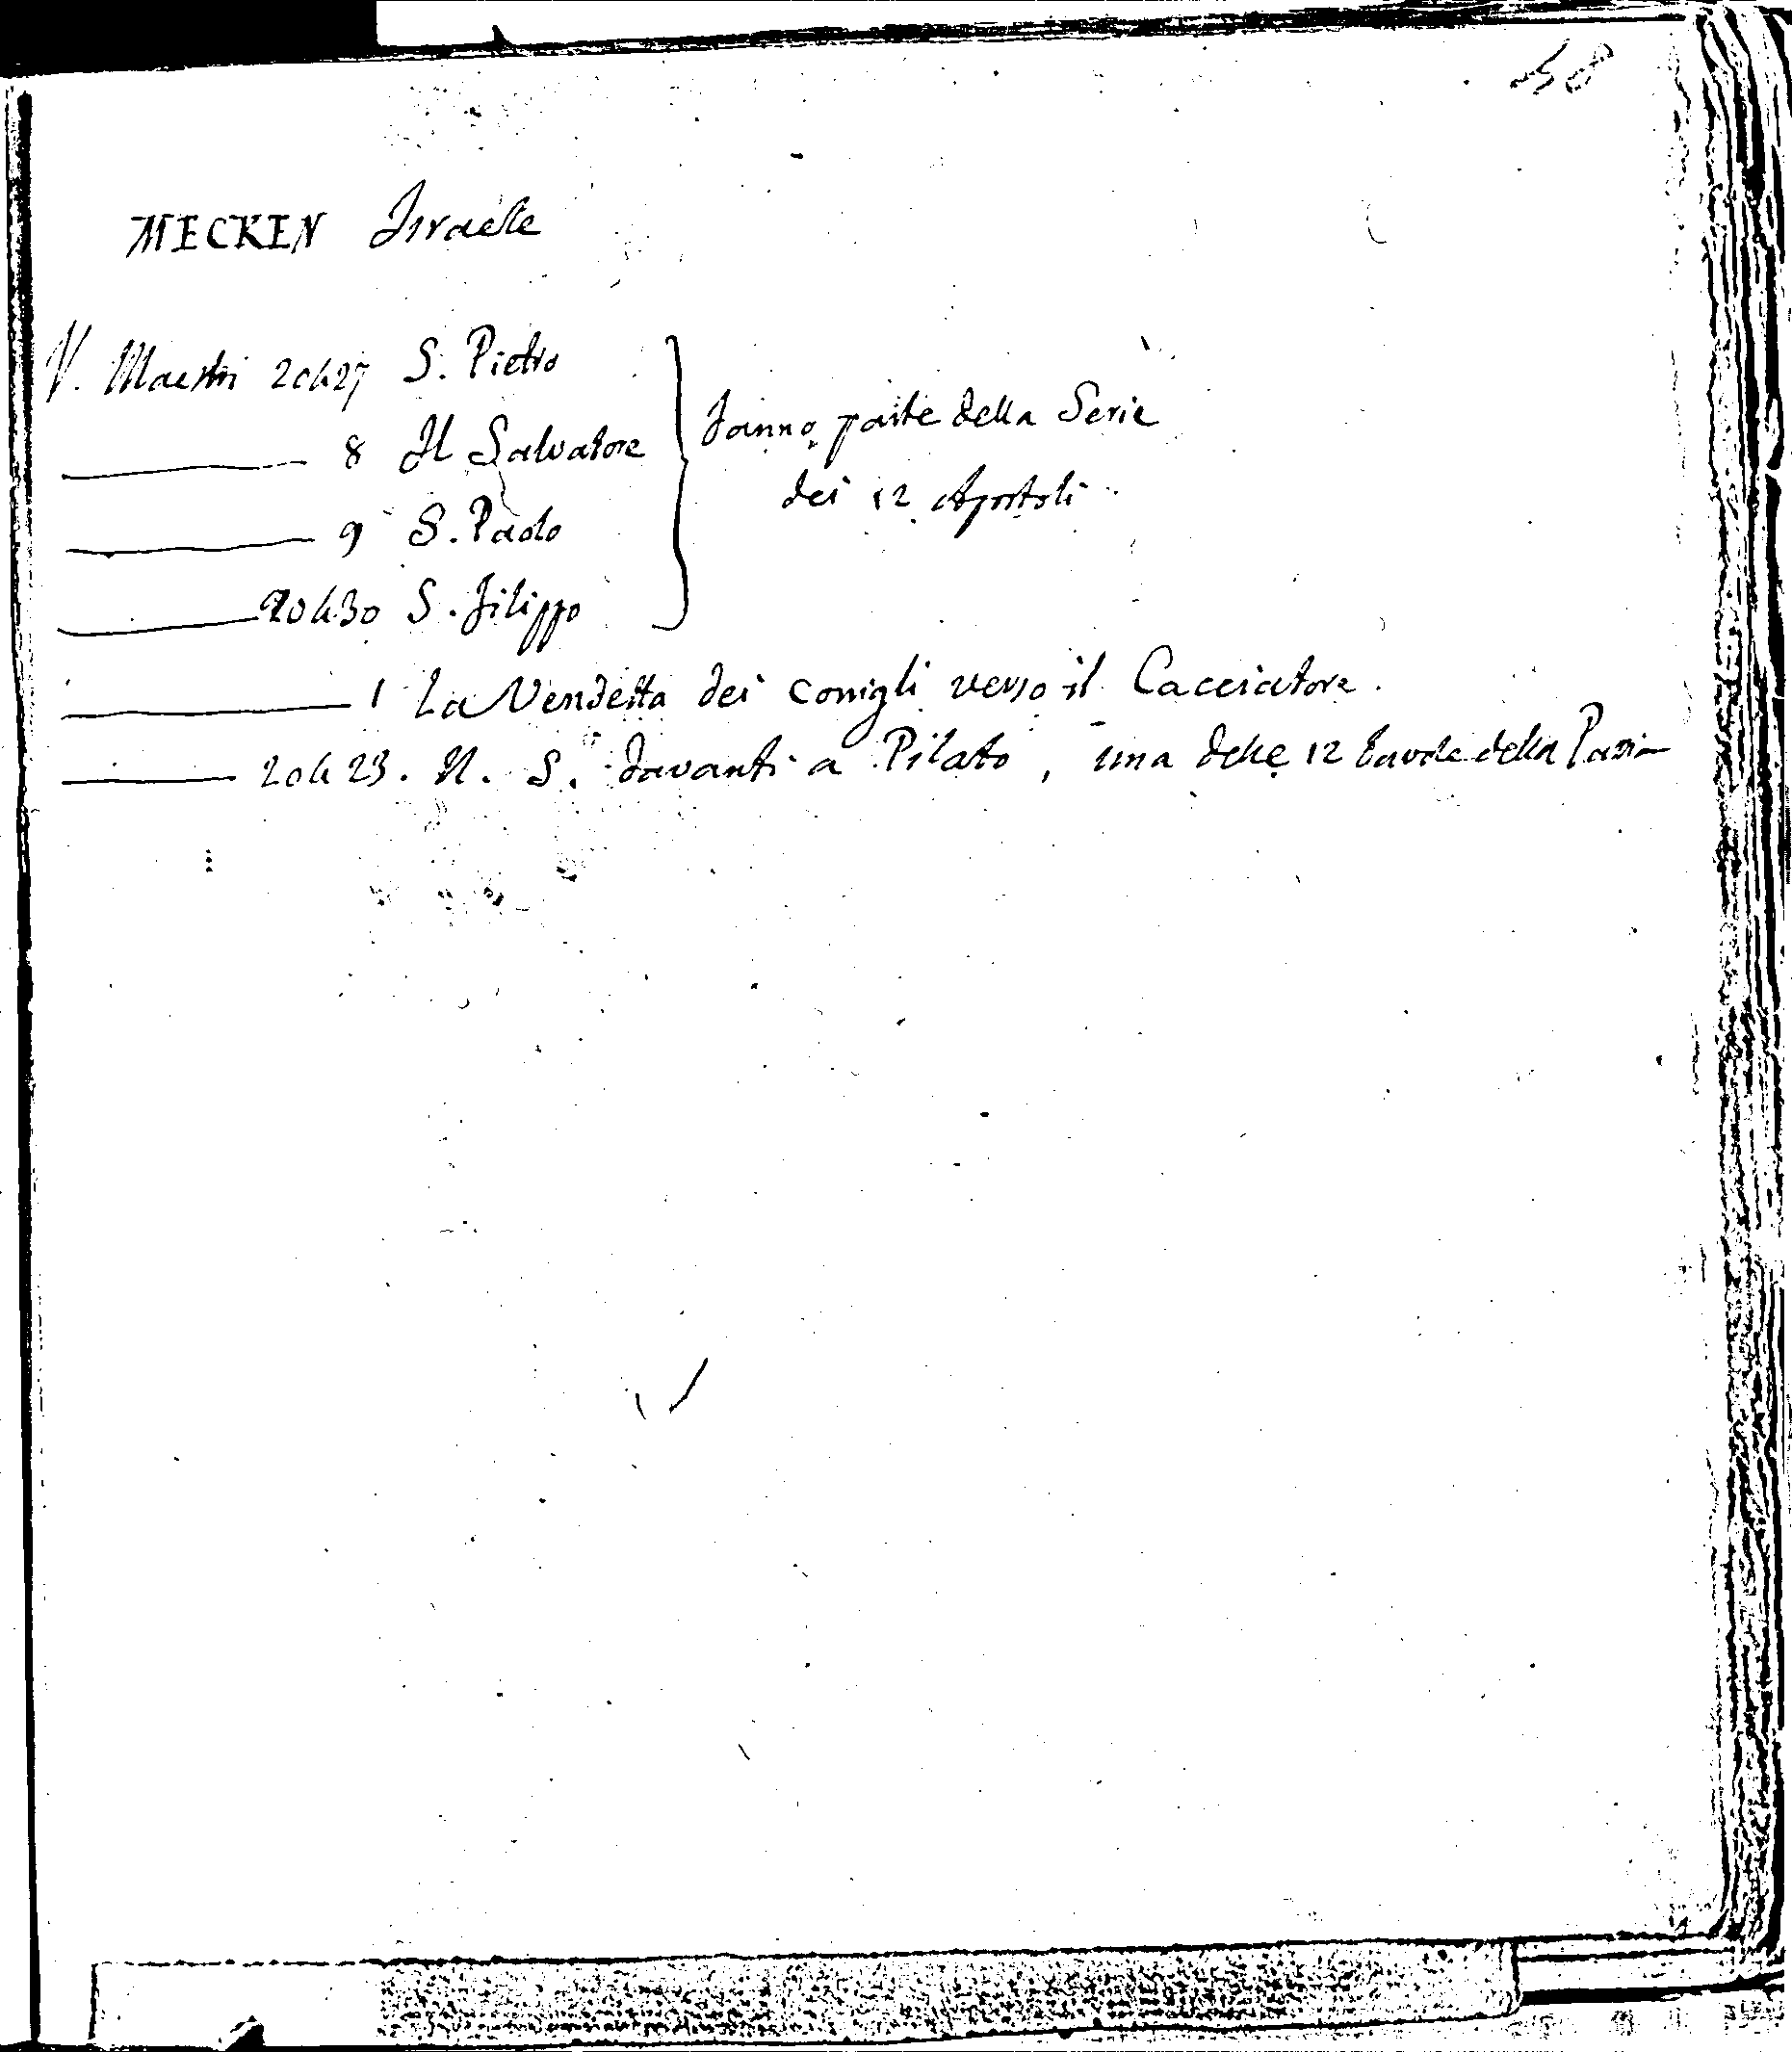 58
MECKEN Israele
V. Maestri 20427 S. Pietro
8 Il Salvatore
fanno parte della Serie
dei 12 Apostoli
9 S. Paolo
20430 S. Filippo
1 La Vendetta dei Conigli verso il Cacciatore.
20423. N. S. davanti a Pilato, una delle 12 tavole della